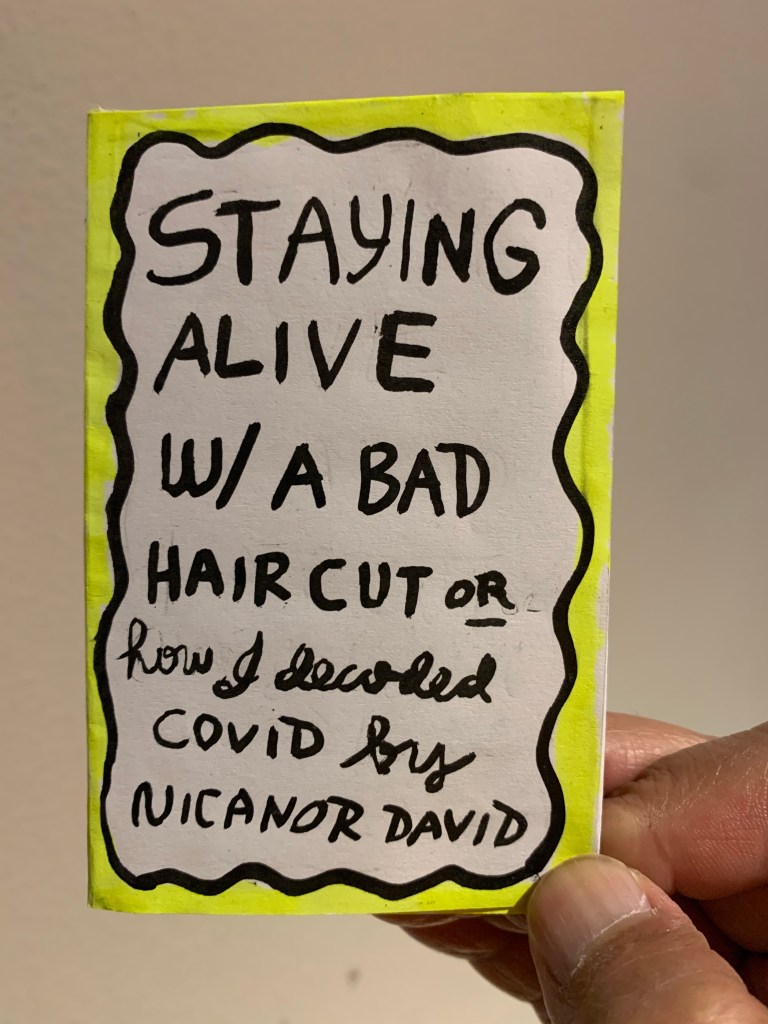 STAYING
ALIVE
W/ A BAD
HAIR CUT OR
how I decoded
COVID by
NICANOR DAVID